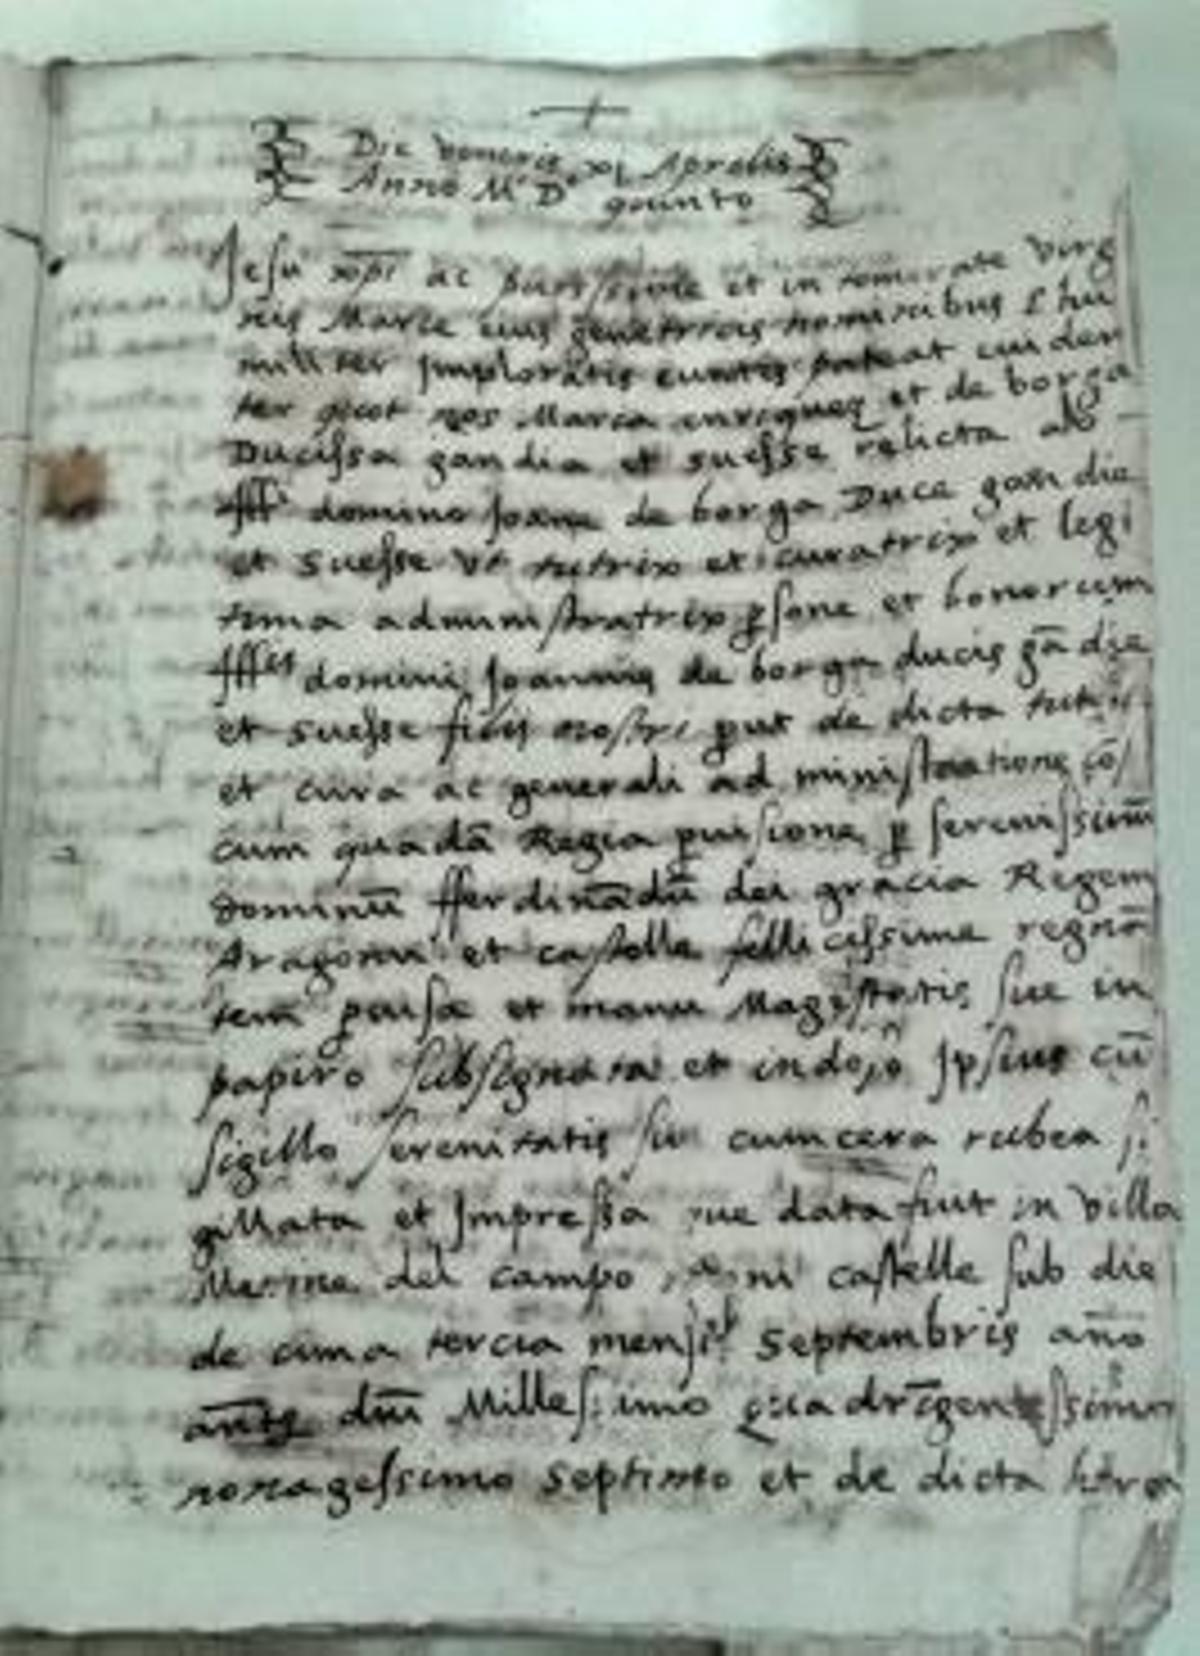 Die veneris xi Aprelis
Anno Mº Dº quinto
Jesu xpi ac purissime et in temerate virg
nis Marie eius genetricis nominibus
militer Jmploratis cunctis pateat euiden
ter quot nos Maria enriquez et de borga
Ducissa gandia et suesse relicta ab
domino Joane de borga Duce gandie
et suesse vt tutrix et curatrix et legi
tima administratrix psone et bonorum
domini Joannis de borga ducis gādie
et suesse filij nostri put de dicta
et cura ac generali ad ministratione
cum quadā Regia puisione p serenissimū
dominū fferdinādū dei gracia Regem
Aragonū et castelle fellicissime regnā
tem et manu Magestatis sue in
papiro subsignata et in ipsius cū
sigillo serenitatis sue cum cera rubea si
gillata et Jmpressa que data fuit in villa
Medine del campo Regni castelle sub die
de cima tercia mensis Septembris año
dn̄i Millesimo quadrīgentessimo
nonagessimo septimo et de dicta